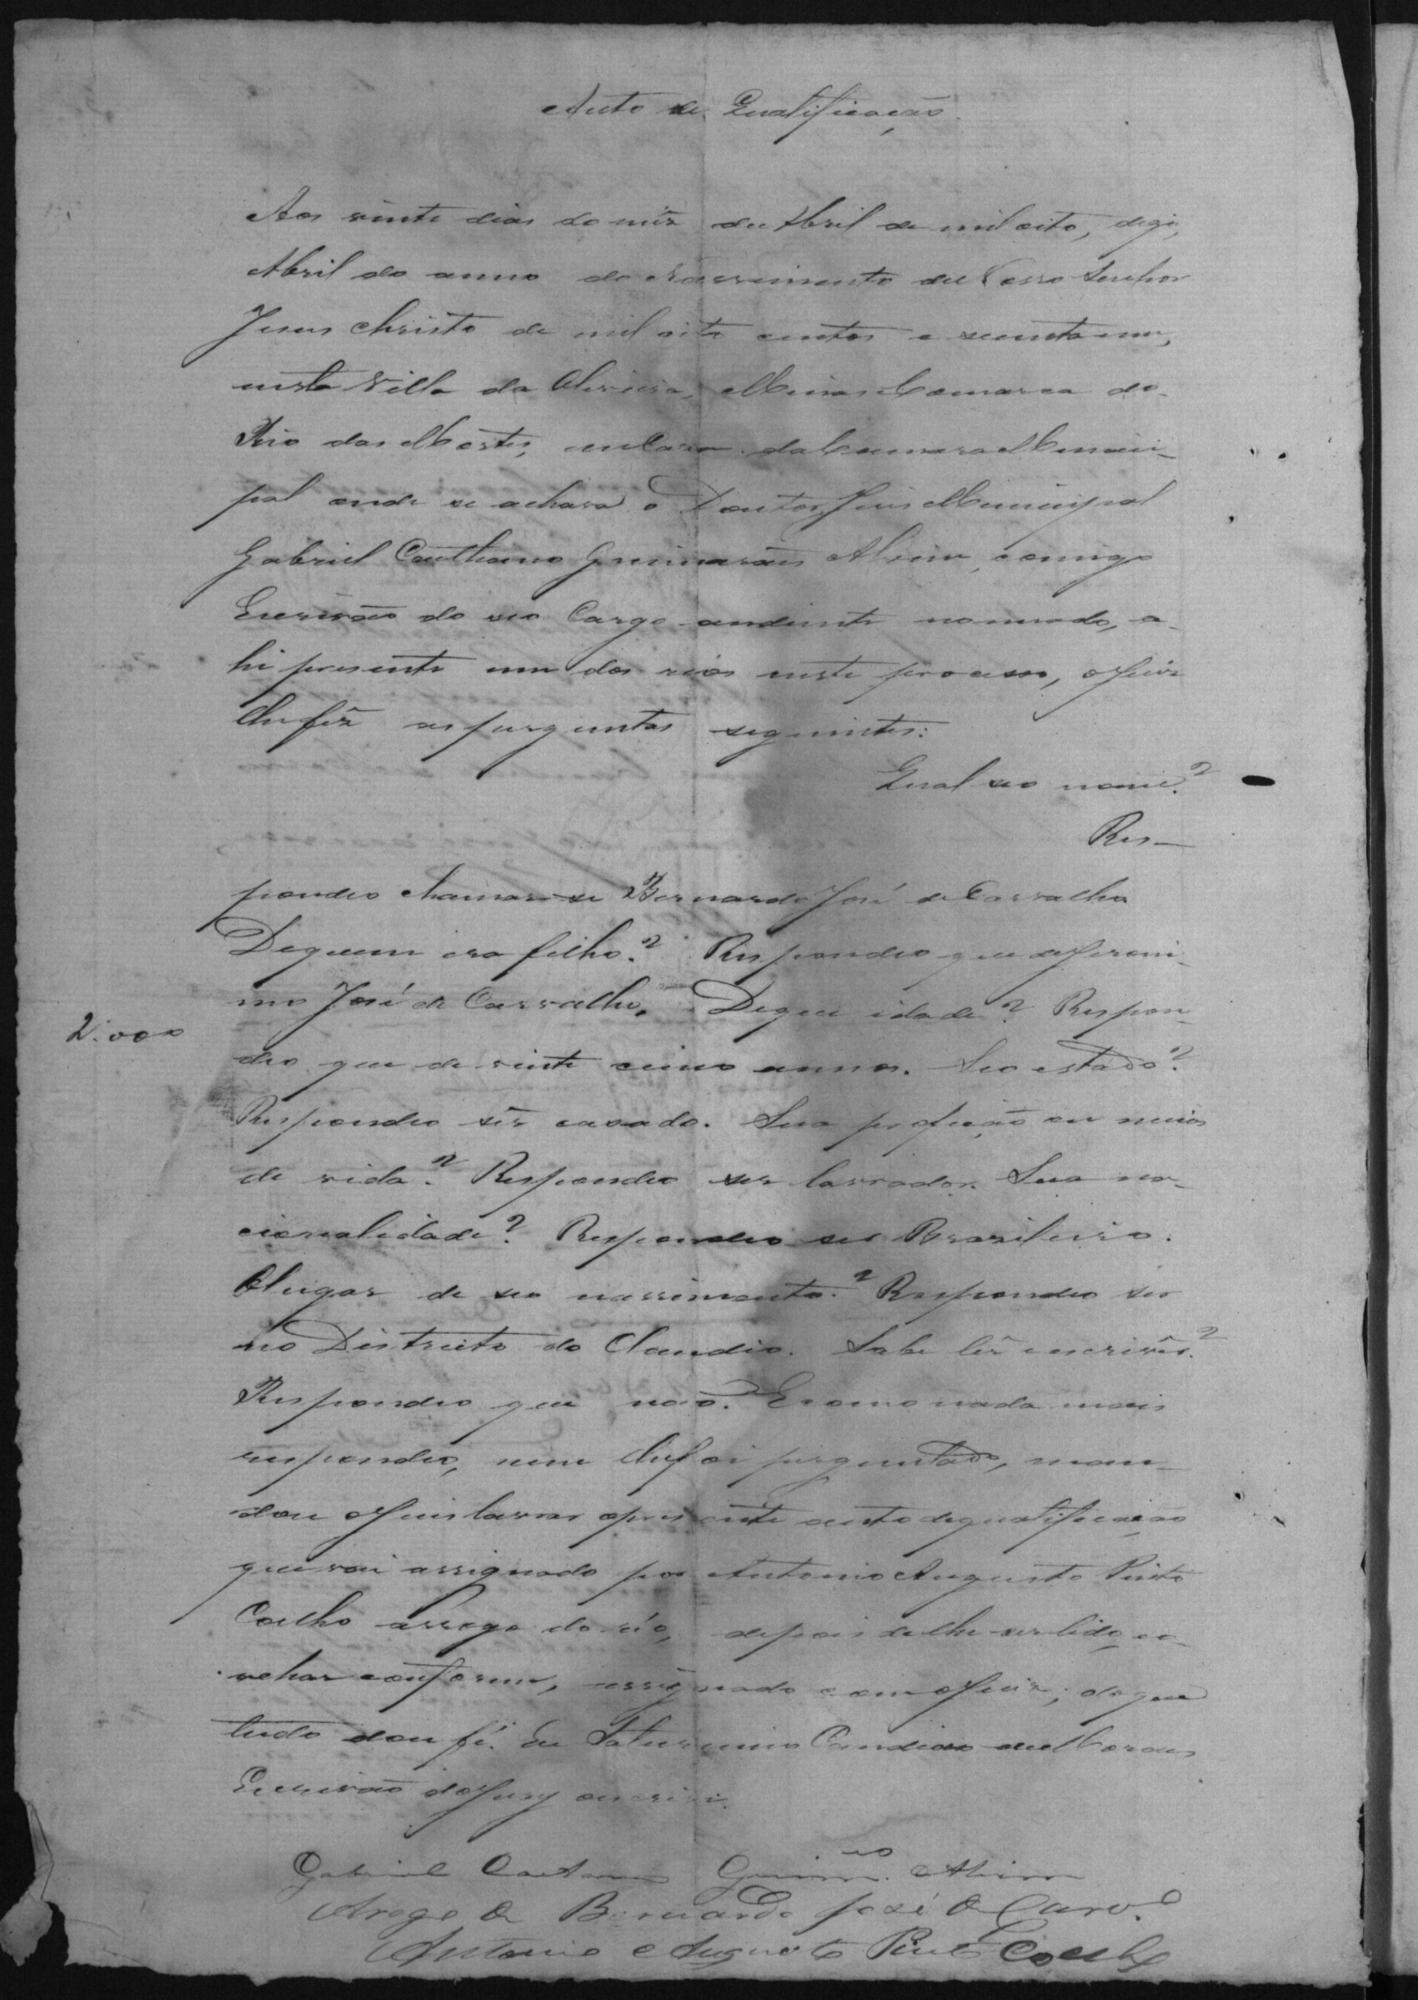 Auto de Qualificação.
Aos vinte dias do mêz de Abril de mil oito, digo,
Abril do anno do Nascimento de Nosso Senhor
Jesus Christo de mil oito centos e secenta um,
nesta Villa da Oliveira, Minas Comarca do
Rio das Mortes, em Casa da Camara Munici-
pal onde se achava o Doutor Juis Municipal
Gabriel Caethano Guimarães Alvim, comigo
Escrivão do seo Cargo andiante nomeado, a-
hi presente um dos réos neste processo, o Juis
lhe fêz as perguntas seguintes:
Qual seo nome?
Res-
pondeo chamar-se Bernardo José de Carvalho
De quem era filho? Respondeo que de Jeroni-
mo José de Carvalho. De que idade? Respon-
2.000
deo que de vinte cinco annos. Seo estado?
Respondeo sêr casado. Sua profição ou meios
de vida? Respondeo ser lavrador. Sua na-
cionalidade? Respondeo ser Brazileiro.
O lugar de seo nascimento? Respondeo ser
no Districto do Claudio. Sabe lêr e escrever?
Respondeo que não. E como nada mais
respondeo, nem lhe foi perguntado, man-
dou o Juis lavrar o presente auto de qualificação
que vai assignado por Antonio Augusto Pinto
Coelho a rrogo do réo, depois de lhe ser lido, e o
achar conforme, assignado com o Juis; do que
tudo dou fé. Eu Saturnino Candido de Moraes
Escrivão do Jury o escrivi.
Gabriel Caetano Guim.es Alvim
Arogo de Bernardo José de Carv.o
Antonio Augusto Pinto Coelho